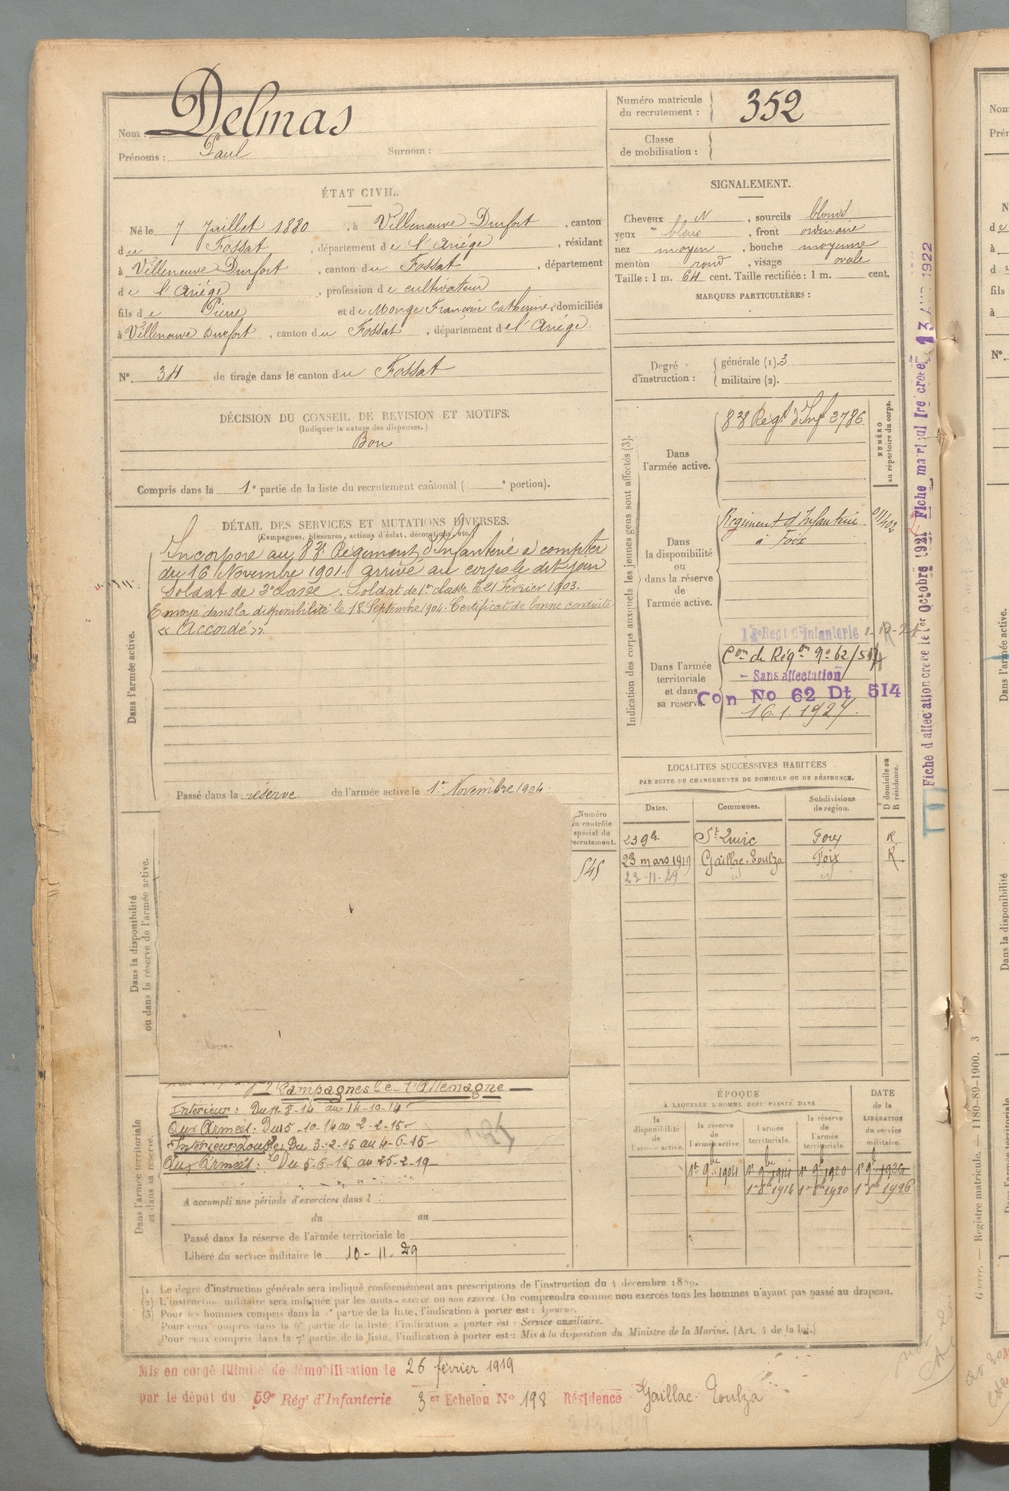 Nom : Delmas
Prénoms : Paul Surnom :
Numéro matricule du recrutement : 352
Classe de mobilisation :
ÉTAT CIVIL.
Né le 7 Juillet 1880, à Villeneuve-Durfort, canton
du Fossat, département de l'Ariége, résidant
à Villeneuve Durfort, canton du Fossat, département
de l'Ariége, profession de cultivateur
fils de Pierre et de Monge François Catherine, domiciliés
à Villeneuve Durfort, canton du Fossat, département de l'Ariége.
N° 34 de tirage dans le canton du Fossat
DÉCISION DU CONSEIL DE REVISION ET MOTIFS.
(Indiquer la nature des dispenses.)
Bon
Compris dans la 1e partie de la liste du recrutement cantonal ( e portion).
SIGNALEMENT.
Cheveux N, sourcils blonds
yeux bleus, front ordinaire
nez moyen, bouche moyenne
menton rond, visage ovale
Taille : 1 m. 64 cent. Taille rectifiée : 1 m. cent.
MARQUES PARTICULIÈRES :
Degré d'instruction : générale (1). 3
militaire (2).
DÉTAIL DES SERVICES ET MUTATIONS DIVERSES.
(Campagnes, blessures, actions d'éclat, décorations, etc.)
Dans l'armée active.
Incorporé au 83e Régiment d'Infanterie à compter
du 16 Novembre 1901. arrivé au corps le dit jour
Soldat de 2e classe. Soldat de 1e classe le 21 Février 1903.
Envoyé dans la disponibilité le 18 Septembre 1904. Certificat de bonne conduite
« Accordé ».
Passé dans la réserve de l'armée active le 1er Novembre 1904.
Indication des corps auxquels les jeunes gens sont affectés (3).
NUMÉRO au répertoire du corps.
Dans l'armée active.
83e Régt d'Inf 3786
Dans la disponibilité ou dans la réserve de l'armée active.
Régiment d'Infanterie
à Foix
Dans l'armée territoriale et dans sa réserve.
Régt d'Infanterie
Con de Régon No 62/514
- Sans affectation
Con No 62 Dt 514
16.1.1927.
Fiche d'affectation créée le 1er Octobre 1921
LOCALITÉS SUCCESSIVES HABITÉES
PAR SUITE DE CHANGEMENTS DE DOMICILE OU DE RÉSIDENCE.
Dates. Communes. Subdivisions de région. D domicile ou R résidence.
St Quirc Foix R
23 mars 1919 Gaillac-Toulza Foix R
23-11-29
Dans la disponibilité ou dans la réserve de l'armée active.
Numéro au contrôle spécial du recrutement.
545
Dans l'armée territoriale et dans sa réserve.
Campagnes c l'Allemagne
Intérieur : Du 8-14 au 14-10-14
Aux Armées : Du 15-10-14 au 2-2-15
Intérieur double Du 3-2-15 au 4-6-15
Aux Armées : Du 5-6-15 au 25-2-19
A accompli une période d'exercices dans l
du au
Passé dans la réserve de l'armée territoriale le
Libéré du service militaire le 10-11-29
ÉPOQUE
A LAQUELLE L'HOMME DOIT PASSER DANS
la disponibilité de l'armée active. la réserve de l'armée active. l'armée territoriale. la réserve de l'armée territoriale.
DATE de la LIBÉRATION du service militaire.
1er 9bre 1904 1er 9bre 1914 1er 9bre 1920 1er 9bre 1926
1er 1914 1er 1920 1er 1926
(1) Le degré d'instruction générale sera indiqué conformément aux prescriptions de l'instruction du 4 décembre 1889.
(2) L'instruction militaire sera indiquée par les mots exercé ou non exercé. On comprendra comme non exercés tous les hommes n'ayant pas passé au drapeau.
(3) Pour les hommes compris dans la partie de la liste, l'indication à porter est : Ajourné.
Pour ceux compris dans la partie de la liste, l'indication à porter est : Service auxiliaire.
Pour ceux compris dans la 7e partie de la liste, l'indication à porter est : Mis à la disposition du Ministre de la Marine. (Art. 4 de la loi.)
Mis en congé illimité de démobilisation le 26 février 1919
par le dépot du 59e Rég' d'Infanterie 3 er Echelon No 198 Résidence Gaillac-Toulza
Registre matricule. — 1180-89-1900. 3